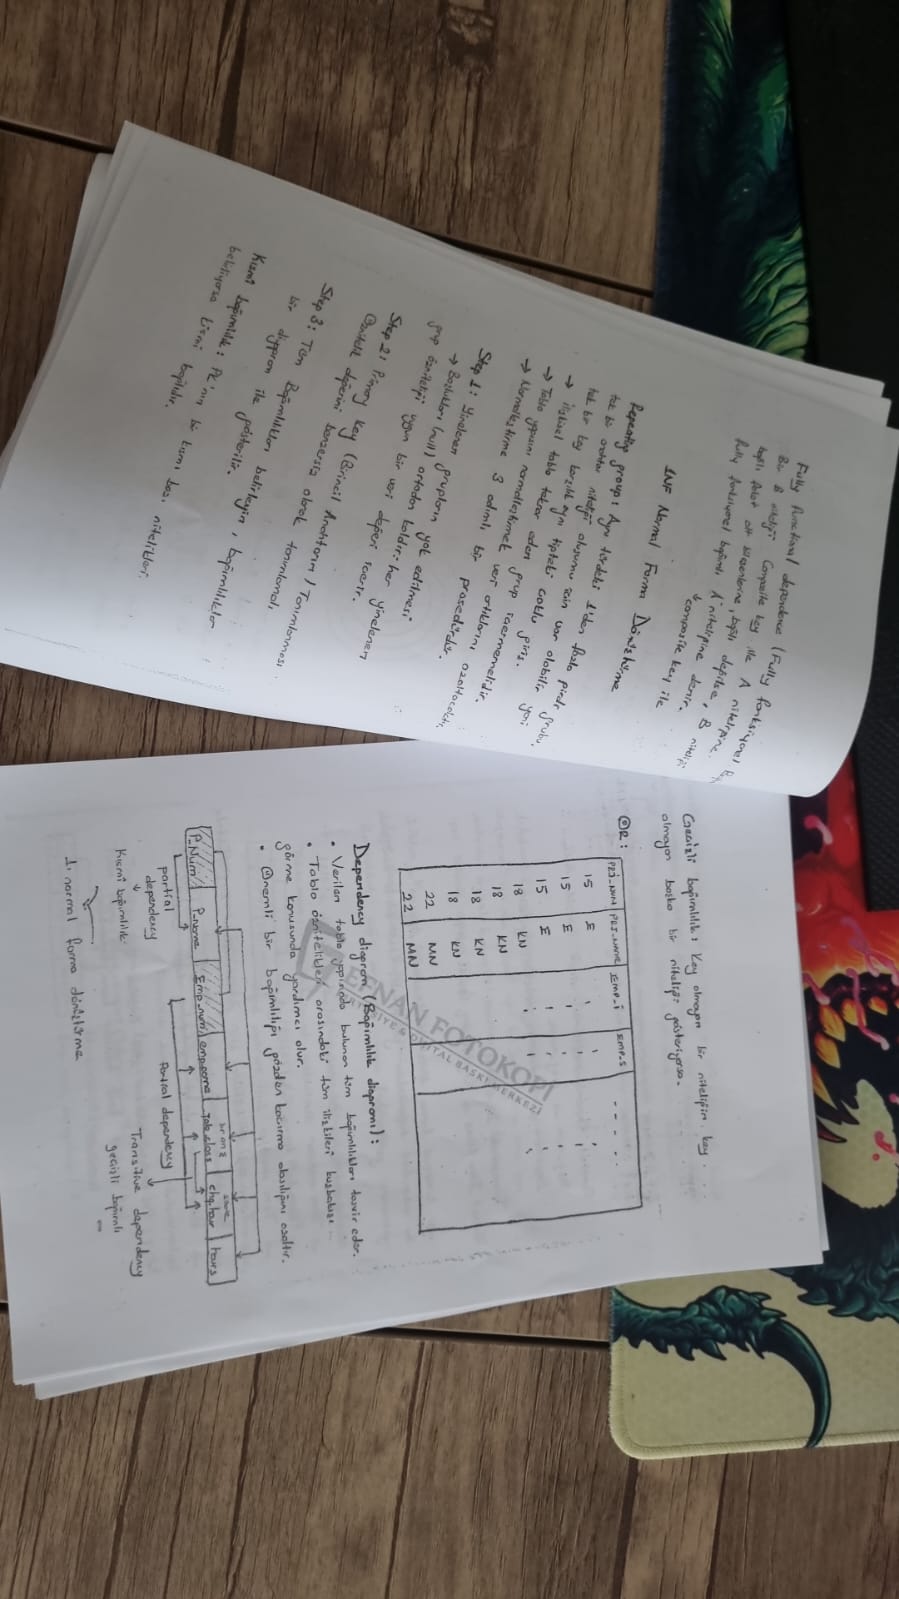 Fully functional dependence (Fully fonksiyonel
Bir B niteliği Composite key ile A niteliğine
bağlı fakat alt kümelerine bağlı değilse, B niteliği
fully fonksiyonel bağımlı A niteliğine denir.
↓
composite key ile
1NF Normal Form Dönüştürme
Repeating group: Aynı türdeki 1'den fazla girdi grubu,
tek bir anahtar niteliği oluşumu için var olabilir yani
tek bir key karşılık aynı tipteki çoklu giriş.
→ İlişkisel tablo tekrar eden grup içermemelidir.
→ Tablo yapısını normalleştirmek veri artıklarını azaltacaktır.
→ Normalleştirme 3 adımlı bir prosedürdür.
Step 1: Yinelenen grupların yok edilmesi
→ Boşlukları (null) ortadan kaldır. Her yinelenen
grup özniteliği uygun bir veri değeri içerir.
Step 2: Primary Key (Birincil Anahtarın) Tanımlanması
Öznitelik değerini benzersiz olarak tanımlamalı.
Step 3: Tüm Bağımlılıkları belirleyin, bağımlılıkları
bir diyagram ile gösterilir.
Kısmi bağımlılık: PK'nın bir kısmı bazı nitelikleri
belirliyorsa kısmi bağlıdır.
Geçişli bağımlılık: Key olmayan bir niteliğin key
olmayan başka bir niteliği gösteriyorsa.
ÖR:
PRJ_NUM PRJ_NAME EMP_İ EMP_S
15 E
15 E
15 E
18 KN
18 KN
18 KN
18 KN
22 MN
22 MN
Dependency diagram (Bağımlılık diagramı):
• Verilen tablo yapısında bulunan tüm bağımlılıkları tasvir eder.
• Tablo öznitelikleri arasındaki tüm ilişkileri kuşbakışı
görme konusunda yardımcı olur.
• Önemli bir bağımlılığı gözden kaçırma olasılığını azaltır.
P_Num P_name Emp_num emp_name Job_class chg_hour hours
partial
dependency
↓
Kısmi bağımlılık
Partial dependency
Transitive dependency
↓
geçişli bağımlı
1. normal forma dönüştürme
FOTOKOPİ
DİJİTAL BASKI MERKEZİ